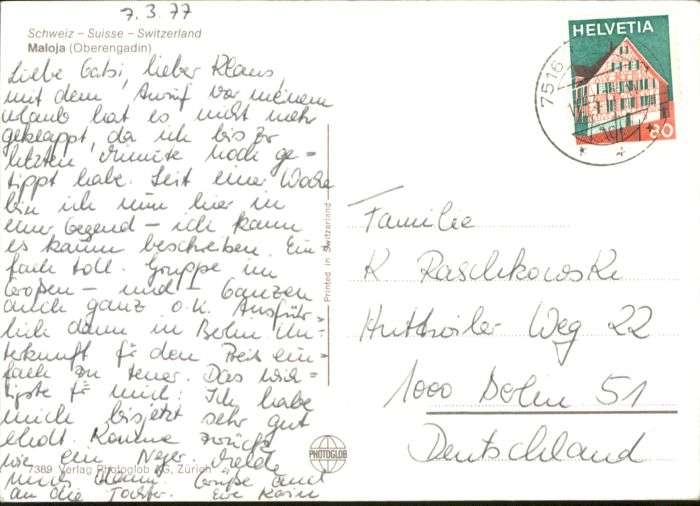 7.3.77
Schweiz – Suisse – Switzerland
Maloja (Oberengadin)
Liebe Gabi, lieber Klaus,
mit dem Anruf vor meinem
Urlaub hat es nicht mehr
geklappt, da ich bis zur
letzten Minute noch ge-
tippt habe. Seit einer Woche
bin ich nun hier in
einer Gegend – ich kann
es kaum beschreiben. Ein-
fach toll. Gruppe im
Großen – und – Ganzen
auch ganz o.k. Ausführ-
lich dann in Berlin. Un-
terkunft für den Preis ein-
fach zu teuer. Das wich-
tigste für mich: Ich habe
mich bis jetzt sehr gut
erholt. Komme zurück
wie ein Neger. Melde
mich dann. Grüße auch
an die Tochter. Eve Karin
7389 Verlag Photoglob AG, Zürich
PHOTOGLOB
Printed in Switzerland
HELVETIA
80
7516
Familie
K Raschkowski
Huttwiler Weg 22
1000 Berlin 51
Deutschland